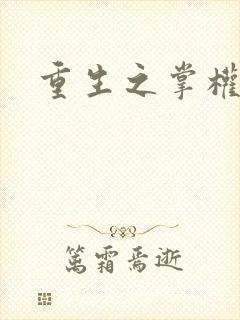 重生之掌權
篤霜焉逝